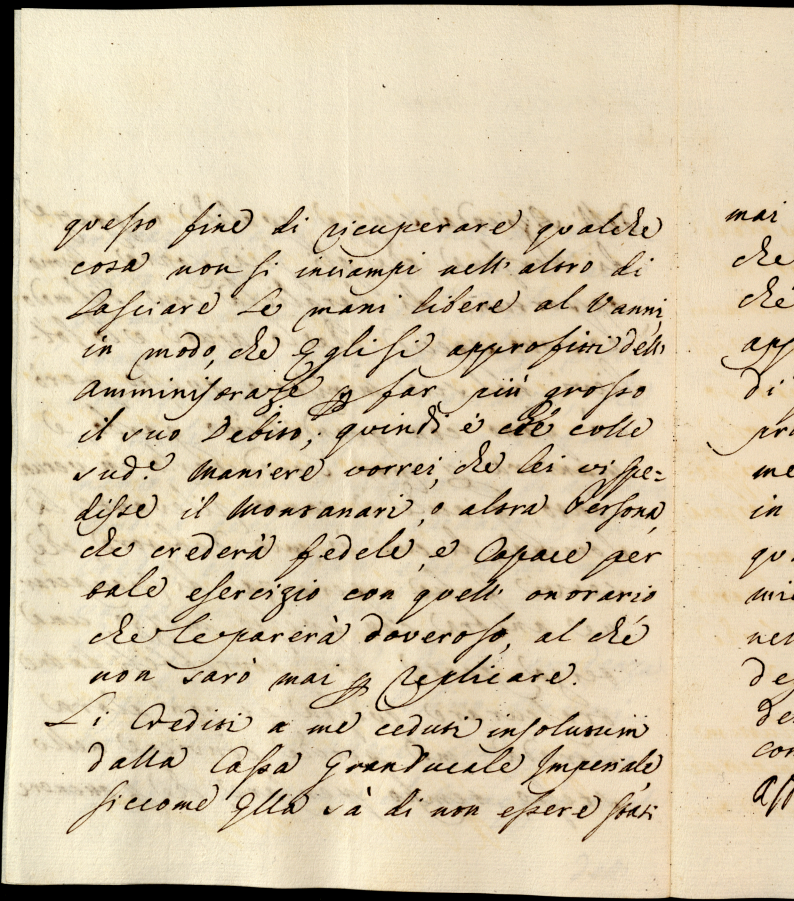 questo fine di ricuperare qualche
cosa non si inciampi nell' altro di
Lasciare Le mani libere al Vanni,
in modo, che Egli si approfitti dell'
Amministraze p far più grosso
il suo Debito; quindi è che colle
sud.e Maniere vorrei, che lei vi spe=
disse il Montanari, o altra Persona,
che crederà fedele, e Capace per
tale esercizio con quell' onorario
che le parerà doveroso, al ché
non sarò mai p Replicare.
Li Crediti a me ceduti insolutum
dalla Cassa GranDucale Imperiale
siccome Ella sà di non essere stati
mai
che
ché
app
di
pro
me
in
qua
mie
nel
des
del
con